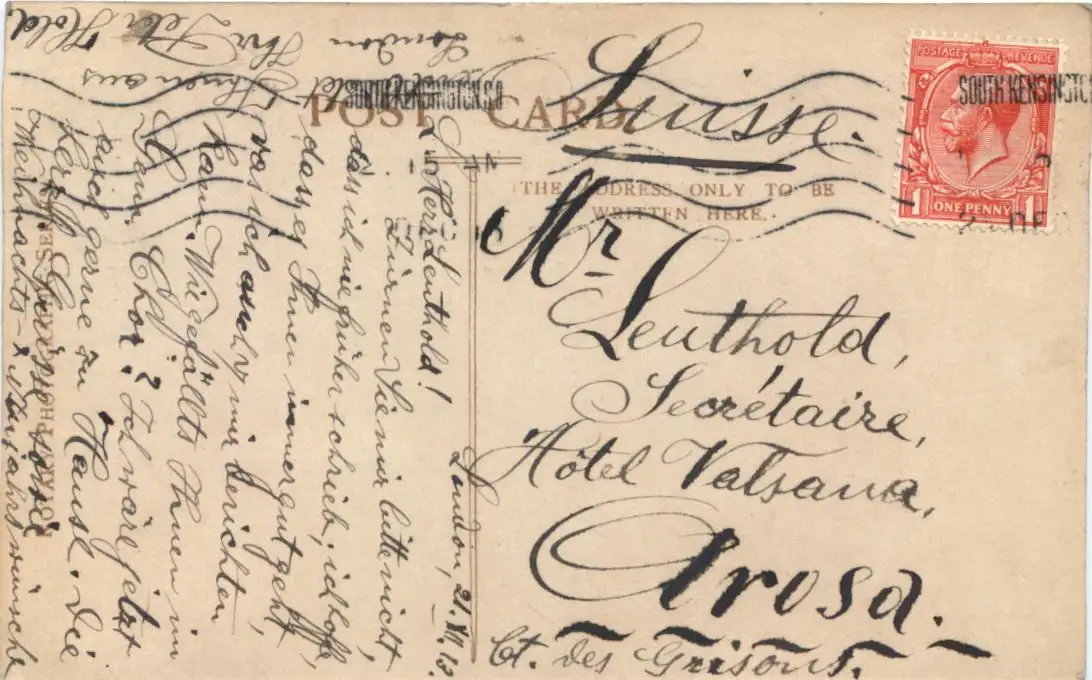 POST CARD
THE ADDRESS ONLY TO BE
WRITTEN HERE.
POSTAGE REVENUE
1 ONE PENNY 1
SOUTH KENSINGTON S.O
SOUTH KENSINGTO
DE
Suisse.
Mr
Leuthold,
Secrétaire,
Hôtel Valsana,
Arosa.
Ct. des Grisons.
London, 21. XII. 13.
Herr Leuthold!
Zürnen Sie mir bitte nicht,
dass ich nie früher schrieb, ich hoffe,
dass es Ihnen immer gut geht,
was ich auch v mir berichten
kann. Wie gefällts Ihnen im
Chor? Ich wäre jetzt
auch gerne zu Hause. Die
herzl. Grüsse sowie
Weihnachts- & Neujahrswünsche
Ihnen aus
London
Ihr Peter Hold
ROTARY PHOTOGRAPHIC SERIES